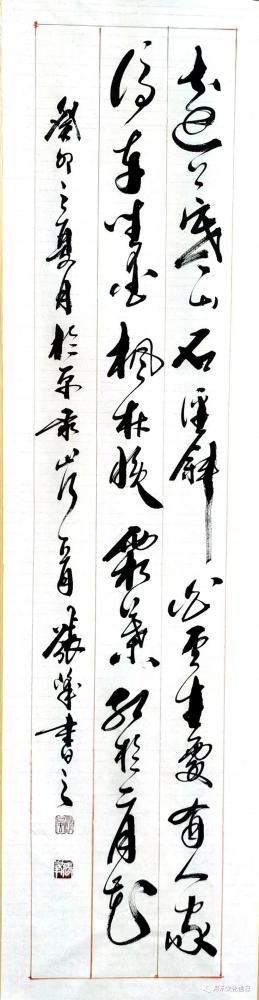 遠上寒山石徑斜 白雲生處有人家
停車坐愛楓林晚 霜葉紅於二月花
癸卯之夏月於京 山行 張 書之